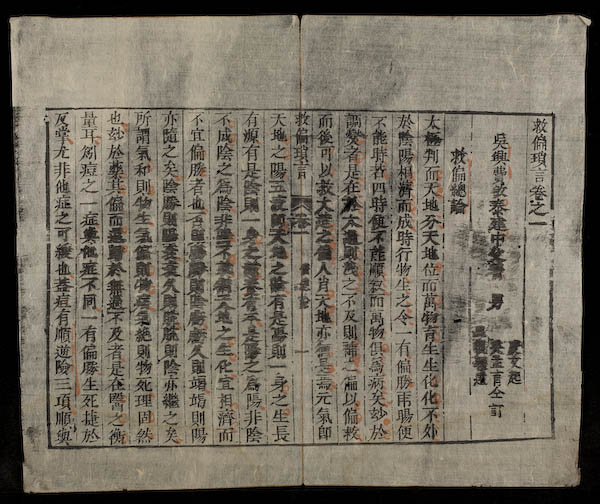 救偏瑣言卷之一
吳興費啟泰建中父著 男
救偏總論
太極判而天地分天地位而萬物育生生化化不外
於陰陽相濟而成時行物生之令一有偏勝雨暘便
不能時若四時便不能順敘而萬物俱為病矣妙於
調燮者是在太過則洩之不及則補之偏以偏救
而後可以救大造之偏人肖天地亦偏是為元氣即
救偏瑣言 卷一 一
天地之陽五液即天地之陰有是陽則一身之生長
有源有是陰則一身之滋養有本是陽之為陽非陰
不成陰之為陰非陽不
宜相濟而
不宜偏勝者也否則陰勝則陽
陽久則竭竭則陽
亦隨之矣陰勝則陽
久則陽脫脫則陰亦繼之矣
所謂氣和則物生氣偏則物病氣絕則物死理固然
也妙於藥其偏而還歸於無過不及者是在醫之衡
量耳矧痘之一症與他症不同一有偏勝生死捷於
反掌尤非他症之可緩也蓋痘有順逆險三項順與